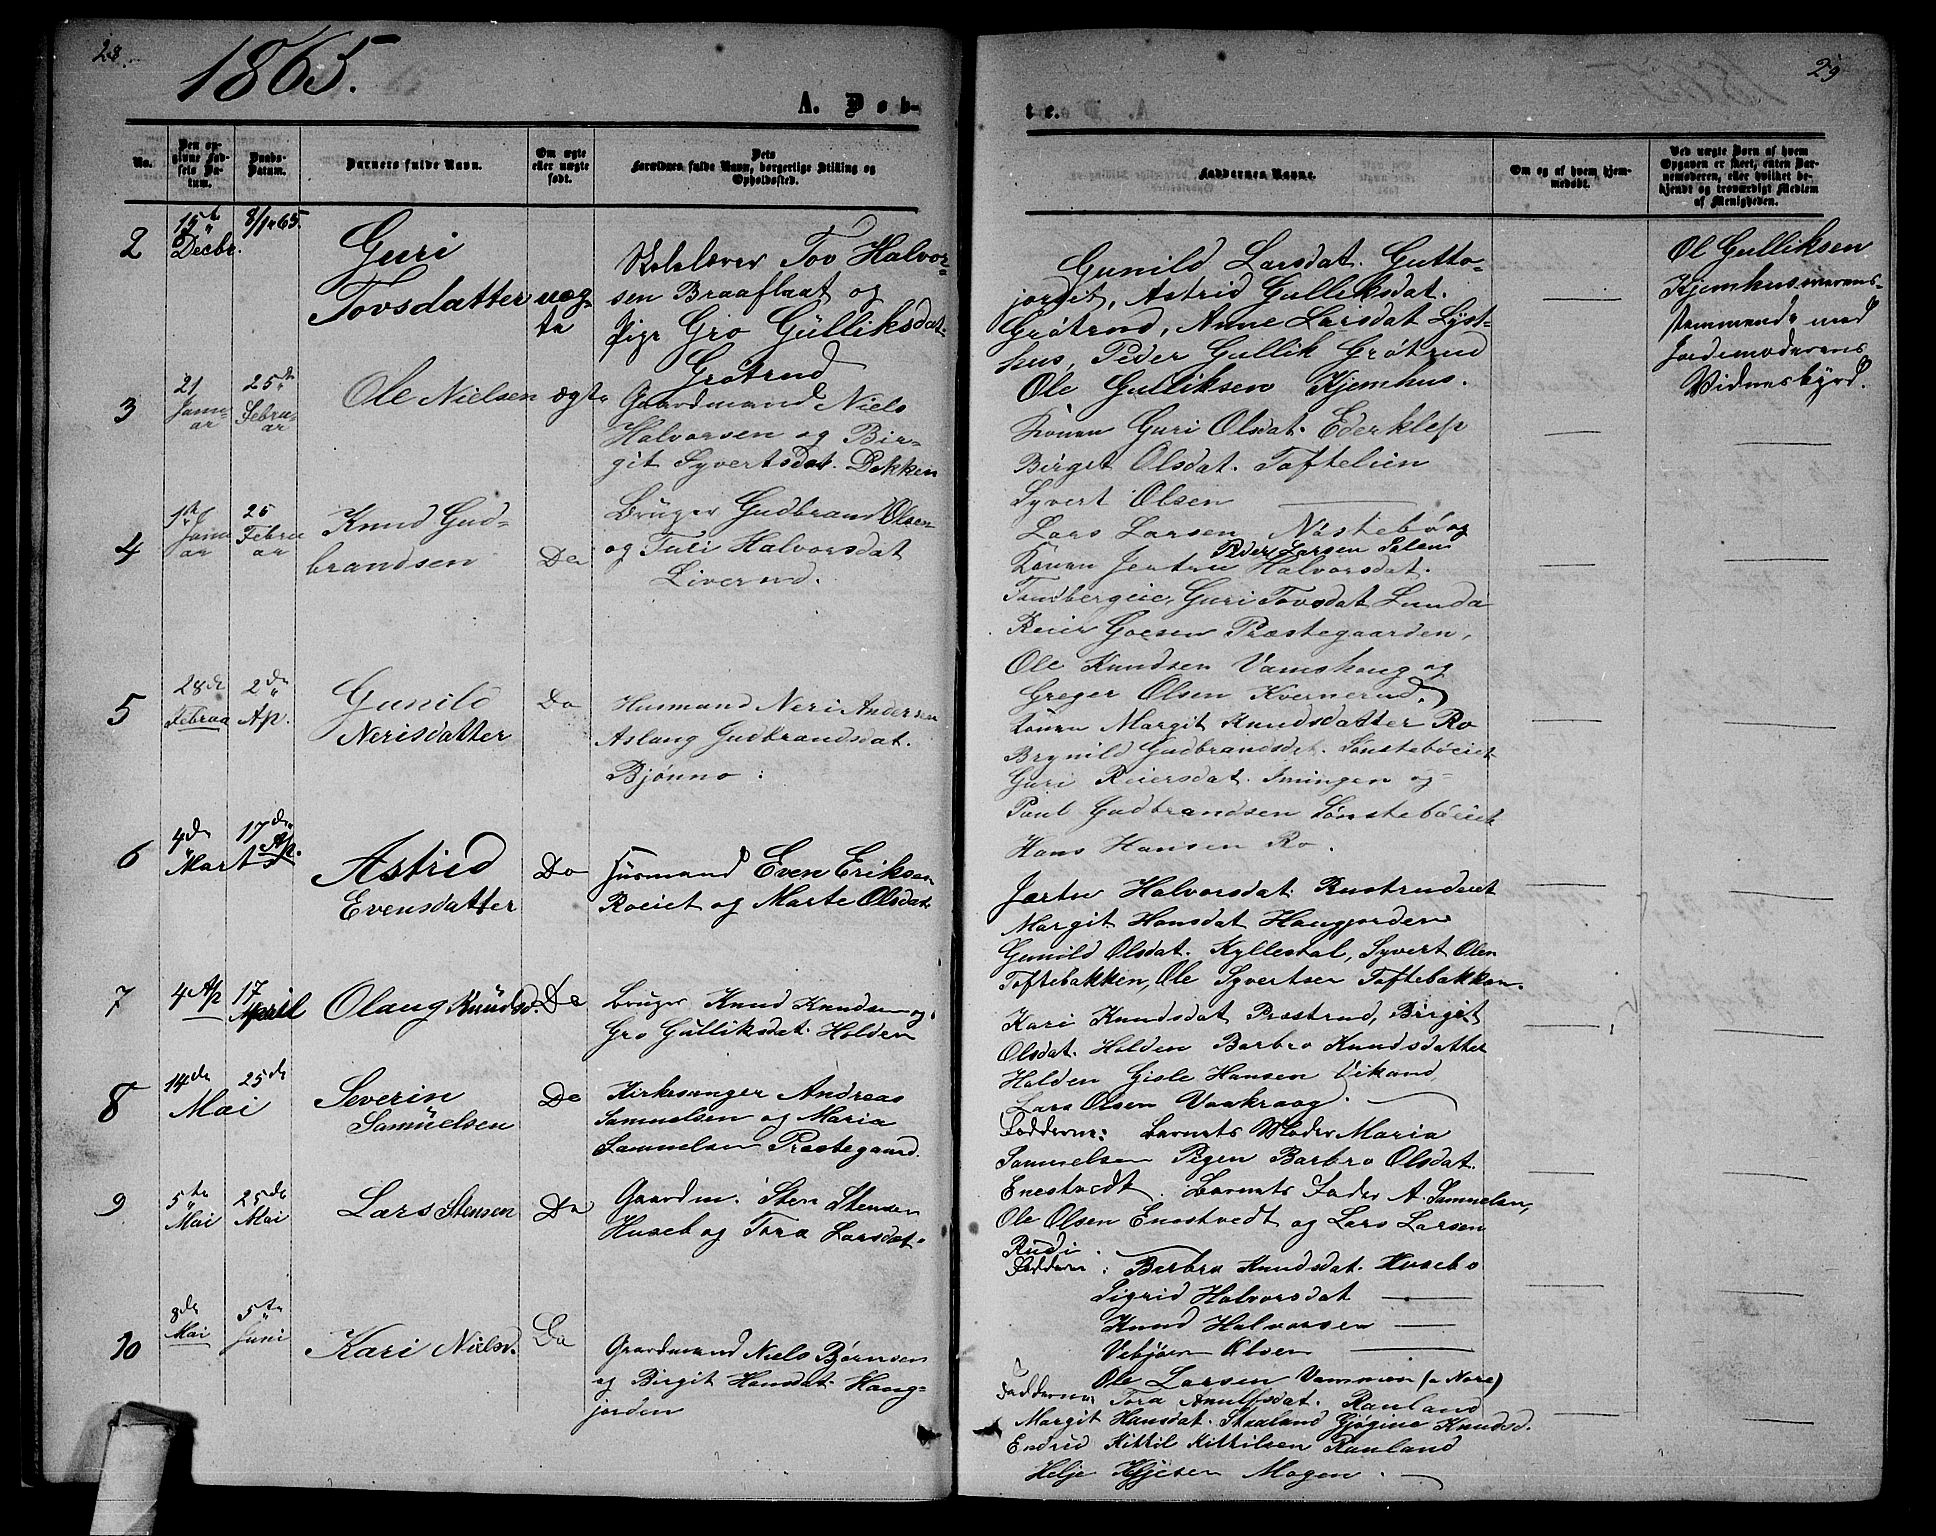 28.
1865.
A. Døb-
No.
Den op-
givne Fød-
sels Da-
tum.
Daabs-
Datum.
Barnets fulde Navn.
Om ægte
eller uægte
født.
Dets
Forældres fulde Navn, borgerlige Stilling og
Opholdssted.
2
15de
Decbr.
8/1 65.
Guri
Tovsdatter
uæg-
te
Skolelærer Tov Halvor-
sen Braaflaat og
Pige Gro Gulliksdat.
Grötrud
3
21
Janu-
ar
25de
Febru-
ar
Ole Nielsen
ægte
Gaardmand Niels
Halvorsen og Bir-
git Syvertsdat. Dokken
4
Janu
ar
25
Febru
ar
Knud Gud-
brandsen
Do
Bruger Gudbrand Olsen
og Juli Halvorsdat
Liverud.
5
28de
Februa
2den
Ap.
Gunild
Nerisdatter
Do
Husmand Neri Andersen
Aslaug Gudbrandsdat.
Bjönno :
6
4de
Marts
17de
Ap.
Astrid
Evensdatter
Do
Husmand Even Eriksen
Roeiet og Marte Olsdat.
7
4 Ap
17
April
Olaug Knudsd.
Do
Bruger Knud Knudsen og
Gro Gulliksdat. Holden
8
14de
Mai
25de
Severin
Samuelsen
Do
Kirkesanger Andreas
Samuelsen og Maria
Samuelsen Præstegaard.
9
5te
Mai
25de
Mai
Lars Stensen
Do
Gaardm. Sten Stensen
Huseb og Tora Larsdat.
10
8de
Mai
5te
Juni
Kari Nielsd.
Do
Gaardmand Niels Börnsen
og Birgit Hansdat. Haug-
jorden
29
te.
Faddernes Navne.
Om og af hvem hjem-
medøbt.
Ved uægte Børn af hvem
Opgaven er skeet, enten Bar-
nemoderen, eller hvilket be-
kjendt og troværdigt Medlem
af Menigheden.
Gunild Larsdat. Gutto-
jordet, Astrid Gulliksdat.
Grötrud, Anne Larsdat Lyst-
hus, Peder Gullik Grötrud
Ole Gulliksen Kjemhus.
Ol Gulliksen
Kjemhus overens-
stemmende med
Jordemoderens
Vidnesbyrd.
Konen Guri Olsdat. Ederklep
Birget Olsdat. Toftelien
Syvert Olsen
Lars Larsen Nöstebö og
Peder Larsen Solem
Konen Jertru Halvorsdat.
Tandbergeie, Guri Tovsdat Lunda
Reier Goesen Præstegaarden,
Ole Knudsen Vamshaug og
Greger Olsen Kvernerud.
Konen Margit Knudsdatter Ro
Brynild Gudbrandsdat. Lönsteböeiet
Guri Reiersdat. Imingen og
Paul Gudbrandsen Lönsteböeiet
Hans Hansen Ro.
Jertru Halvorsdat. Rustrudeiet
Margit Hansdat Haugjorden
Gunild Olsdat. Kyllestal, Syvert Olen
Toftebakken, Ole Syvertsen Toftebakken.
Kari Knudsdat Præstrud, Birgit
Olsdat. Holden Barbro Knudsdatter
Holden Gisle Hansen Eikand,
Lars Olsen Vaakraag.
Fadderne: Barnets Moder Maria
Samuelsen Pigen Barbro Olsdat.
Enestvedt. Barnets Fader A. Samuelsen,
Ole Olsen Enestvedt og Lars Larsen
Rudi.
Faddern: Barbro Knudsdat. Husebo
Sigrid Halvorsdat
Knud Halvorsen
Vebjörn Olsen
Ole Larsen Vammen (a Nore)
Fadderne, Tora Arnulfsdat. Rauland
Margit Hansdat. Skaaland Gjögine Knudsd.
Endrud Kittil Kittilsen Rauland
Helje Heljesen Mogen.